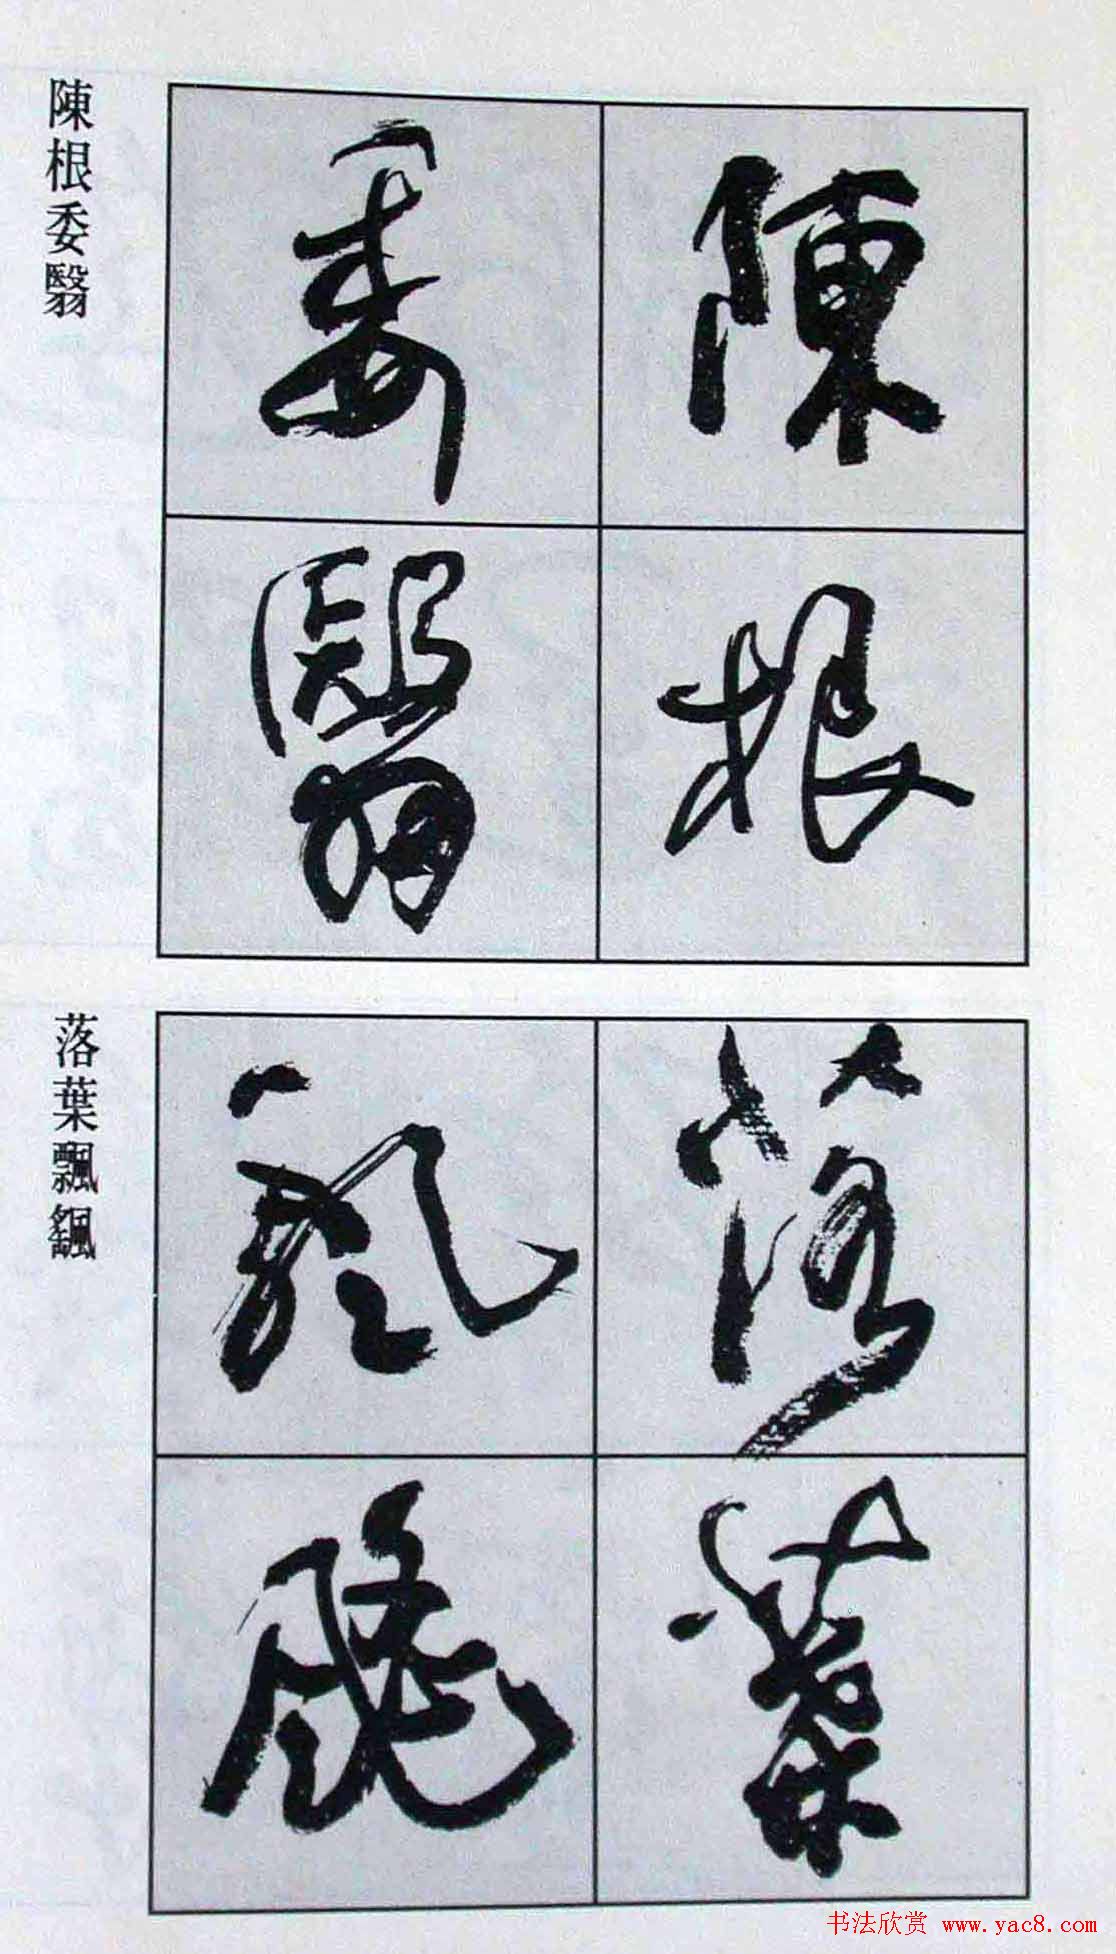 陳根委翳
陳根
委翳
落葉飄颻
落葉
飄颻
书法欣赏 www.yac8.com